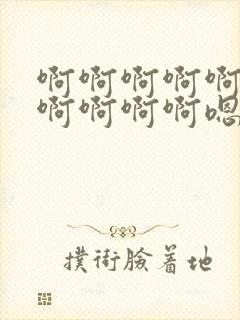 啊啊啊啊啊
啊啊啊啊嗯
撲街臉着地